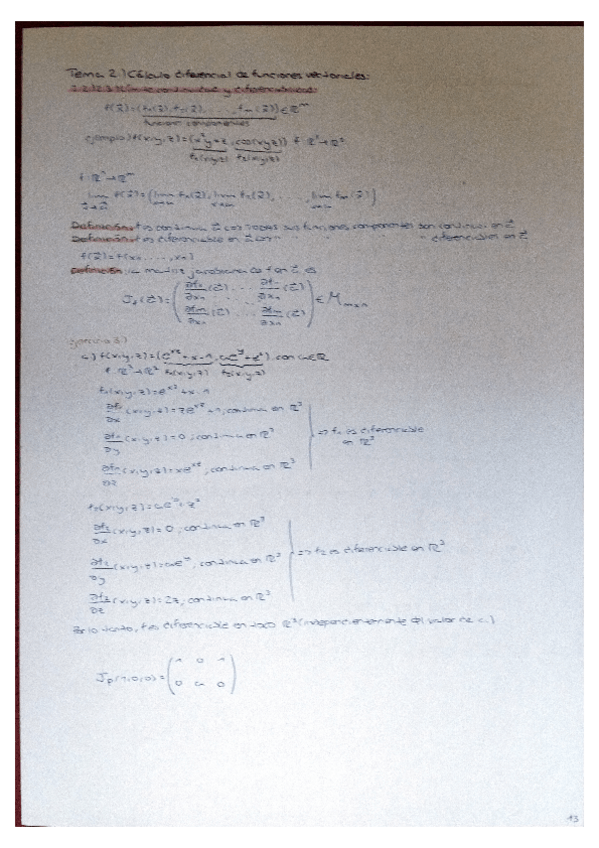 Tema 2.) Cálculo diferencial de funciones vectoriales:
2.2.) 2.3.) Límite, continuidad y diferenciabilidad:
f(x⃗)=(f₁(x⃗), f₂(x⃗), ..., fₘ(x⃗)) ∈ ℝᵐ
funciones componentes
ejemplo) f(x,y,z)=(x²y+z, cos(xyz)) f: ℝ³→ℝ²
f₁(x,y,z) f₂(x,y,z)
f: ℝⁿ→ℝᵐ
lim f(x⃗)=(lim f₁(x⃗), lim f₂(x⃗), ..., lim fₘ(x⃗))
Definición: f es continua en a⃗ cos todas sus funciones componentes son continuas en a⃗
Definición: f es diferenciable en a⃗ cos " " diferenciables en a⃗
f(x⃗)=f(x₁, ..., xₙ)
Definición: la matriz jacobiana de f en a⃗ es
J_f(a⃗)= (∂f₁/∂x₁(a⃗) ... ∂f₁/∂xₙ(a⃗)
∂fₘ/∂x₁(a⃗) ... ∂fₘ/∂xₙ(a⃗)) ∈ M_{m×n}
Ejercicio 3.)
c.) f(x,y,z)=(e^{xz}+x-1, ae^y+z²), con a∈ℝ
f: ℝ³→ℝ² f₁(x,y,z) f₂(x,y,z)
f₁(x,y,z)=e^{xz}+x-1
∂f₁/∂x (x,y,z)=ze^{xz}+1, continua en ℝ³
∂f₁/∂y (x,y,z)=0, continua en ℝ³ => f₁ es diferenciable en ℝ³
∂f₁/∂z (x,y,z)=xe^{xz}, continua en ℝ³
f₂(x,y,z)=ae^y+z²
∂f₂/∂x (x,y,z)=0, continua en ℝ³
∂f₂/∂y (x,y,z)=ae^y, continua en ℝ³ => f₂ es diferenciable en ℝ³
∂f₂/∂z (x,y,z)=2z, continua en ℝ³
Por lo tanto, f es diferenciable en todo ℝ³ (independientemente del valor de a.)
J_f(1,0,0)= (1 0 1
0 a 0)
13